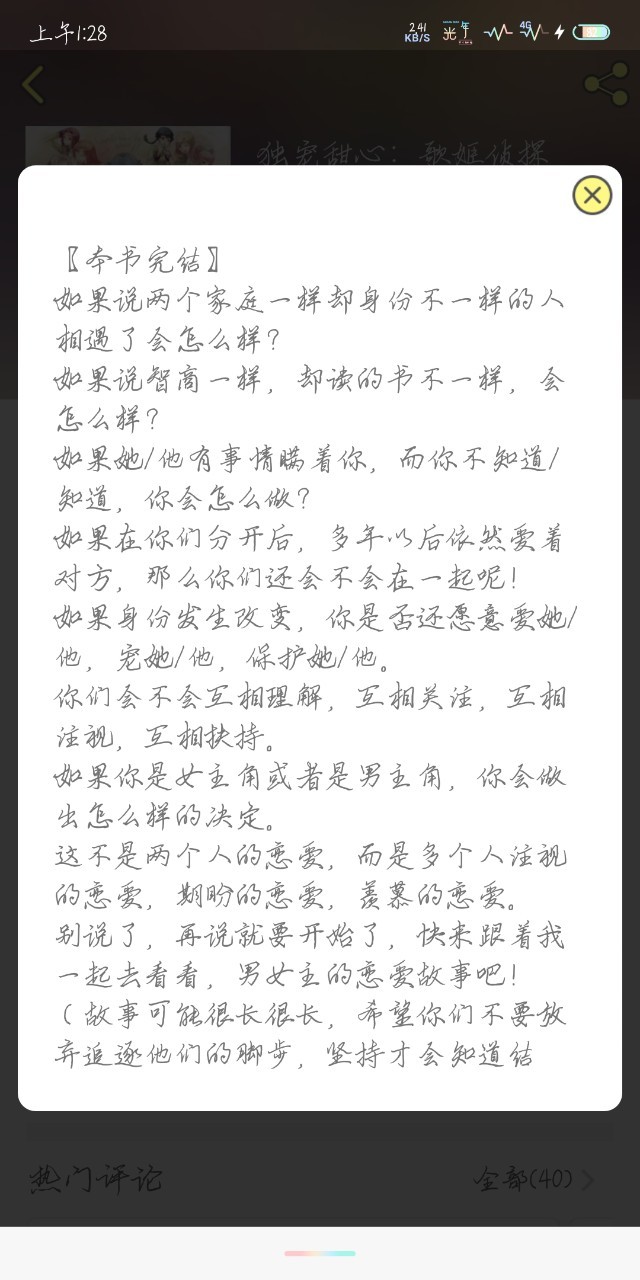 上午1:28
241
KB/S
光年
4G
独宠甜心：歌姬侦探
【本书完结】
如果说两个家庭一样却身份不一样的人
相遇了会怎么样？
如果说智商一样，却读的书不一样，会
怎么样？
如果她/他有事情瞒着你，而你不知道/
知道，你会怎么做？
如果在你们分开后，多年以后依然爱着
对方，那么你们还会不会在一起呢！
如果身份发生改变，你是否还愿意爱她/
他，宠她/他，保护她/他。
你们会不会互相理解，互相关注，互相
注视，互相扶持。
如果你是女主角或者是男主角，你会做
出怎么样的决定。
这不是两个人的恋爱，而是多个人注视
的恋爱，期盼的恋爱，羡慕的恋爱。
别说了，再说就要开始了，快来跟着我
一起去看看，男女主的恋爱故事吧！
（故事可能很长很长，希望你们不要放
弃追逐他们的脚步，坚持才会知道结
热门评论
全部(40)